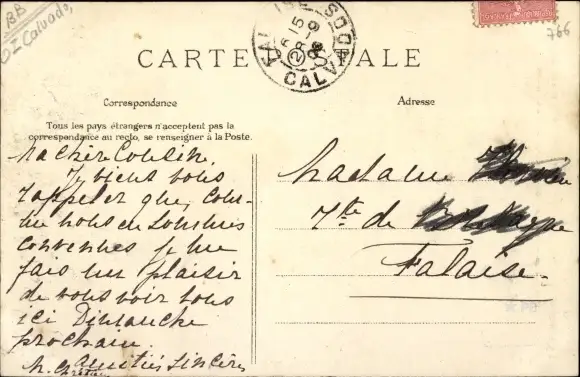 BB
OZ Calvados,
766
CARTE POSTALE
CALVADOS
15
Correspondance
Adresse
Tous les pays étrangers n'acceptent pas la
correspondance au recto, se renseigner à la Poste.
Ma chère Cousine,
Je viens vous
rappeler que, com-
me nous en sommes
convenues je me
fais un plaisir
de vous voir tous
ici Dimanche
prochain.
amitiés sincères
Madame
de
Falaise.